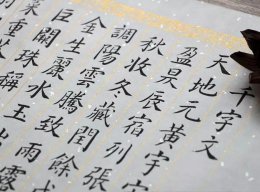 千字文
天地元黃宇
盈昃辰宿列張
秋收冬藏閏餘成
調陽雲騰致雨露
金生麗水玉出
巨闕珠稱
重芥